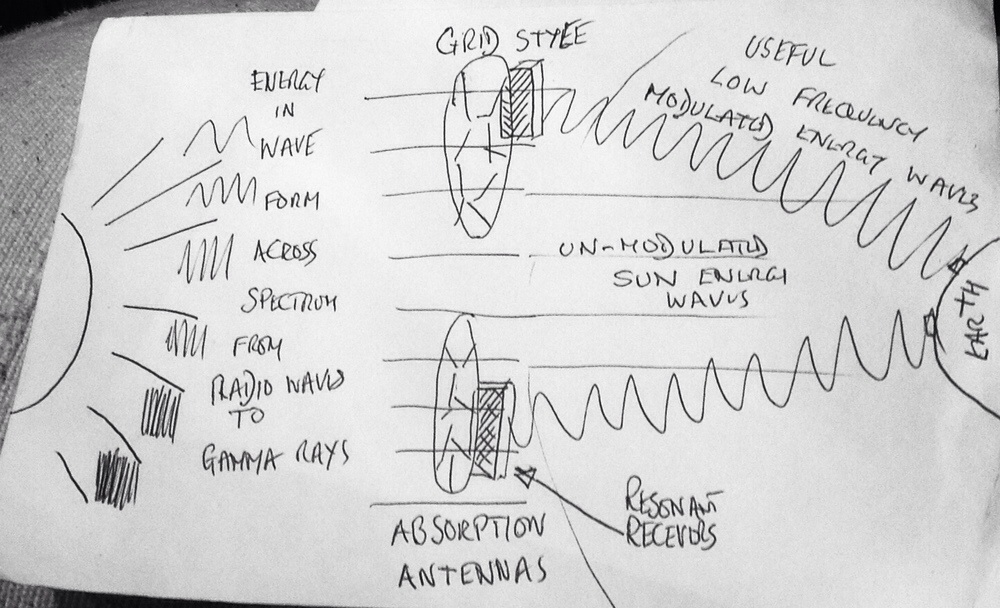 GRID STYLE
ENERGY
IN
WAVE
FORM
ACROSS
SPECTRUM
FROM
RADIO WAVES
TO
GAMMA RAYS
USEFUL
LOW FREQUENCY
MODULATED ENERGY WAVES
UN-MODULATED
SUN ENERGY
WAVES
EARTH
ABSORPTION
ANTENNAS
RESONANT
RECEVORS